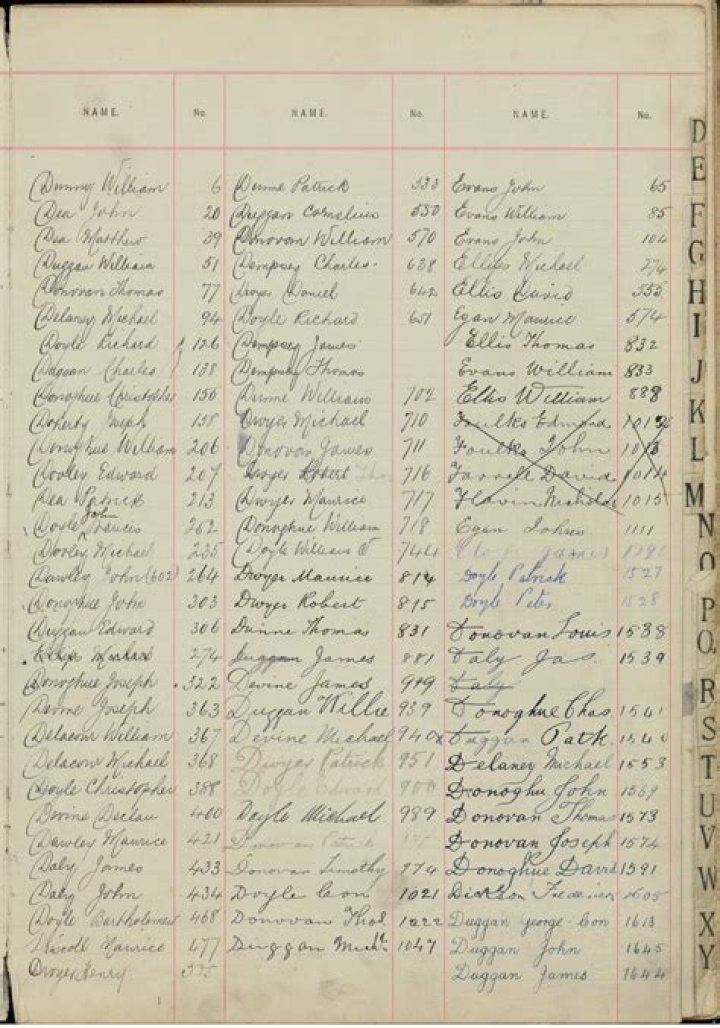 NAME. No. NAME. No. NAME. No.
Dunny William 6
Dea John 20
Dea Matthew 39
Duggan William 51
Donovan Thomas 77
Delaney Michael 94
Doyle Richard 126
Duggan Charles 138
Donoghue Christopher 156
Doherty Joseph 158
Donoghue William 206
Dooley Edward 207
Dea Patrick 213
John
Doyle Frances 262
Dooley Michael 235
Dawley John (602) 264
Donoghue John 303
Duggan Edward 306
Michael 274
Donoghue Joseph 322
Devine Joseph 363
Delacour William 367
Delacour Michael 368
Doyle Christopher 388
Devine Declan 400
Dawley Maurice 421
Daly James 433
Daly John 434
Doyle Bartholomew 468
Driscoll Maurice 477
Dwyer Henry 525
Dunne Patrick 533
Duggan Cornelius 550
Donovan William 570
Dempsey Charles 638
Dwyer Daniel 642
Doyle Richard 651
Dempsey James
Dempsey Thomas
Dunne William 702
Dwyer Michael 710
Donovan James 711
Dwyer Robert 716
Dwyer Maurice 717
Donoghue William 718
Doyle William 744
Dwyer Maurice 814
Dwyer Robert 815
Dunne Thomas 831
Duggan James 881
Devine James 919
Duggan Willie 939
Devine Michael 940x
Dwyer Patrick 951
Doyle Edward
Doyle Michael 989
Donovan Patrick
Donovan Timothy 974
Doyle Con 1021
Donovan Thos. 1022
Duggan Michl. 1047
Evans John 65
Evans William 85
Evans John 104
Ellis Michael 274
Ellis David 555
Egan Maurice 574
Ellis Thomas 832
Evans William 833
Ellis William 888
Foulks Edmond 1012
Foulks John 1013
Farrell David 1014
Flavin Nicholas 1015
Egan John 1111
James
Doyle Patrick 1527
Doyle Peter 1528
Donovan Louis 1538
Daly Jas. 1539
Daly
Donoghue Chas 1541
Duggan Patk. 1540
Delaney Michael 1553
Donoghu John 1569
Donovan Thomas 1573
Donovan Joseph 1574
Donoghue David 1591
Dickson Frederick 1605
Duggan George-Con 1613
Duggan John 1645
Duggan James 1644
D
E
F
G
H
I
J
K
L
M
N
O
P
Q
R
S
T
U
V
W
X
Y